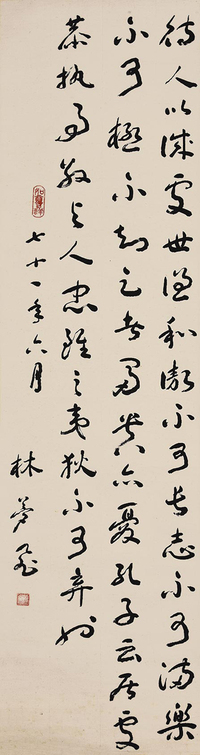 待人以誠處世溫和傲不可長志不可滿樂
不可極不知足者富貴亦憂孔子云居處
恭執事敬與人忠雖之夷狄不可棄也
七十一年六月
林夢